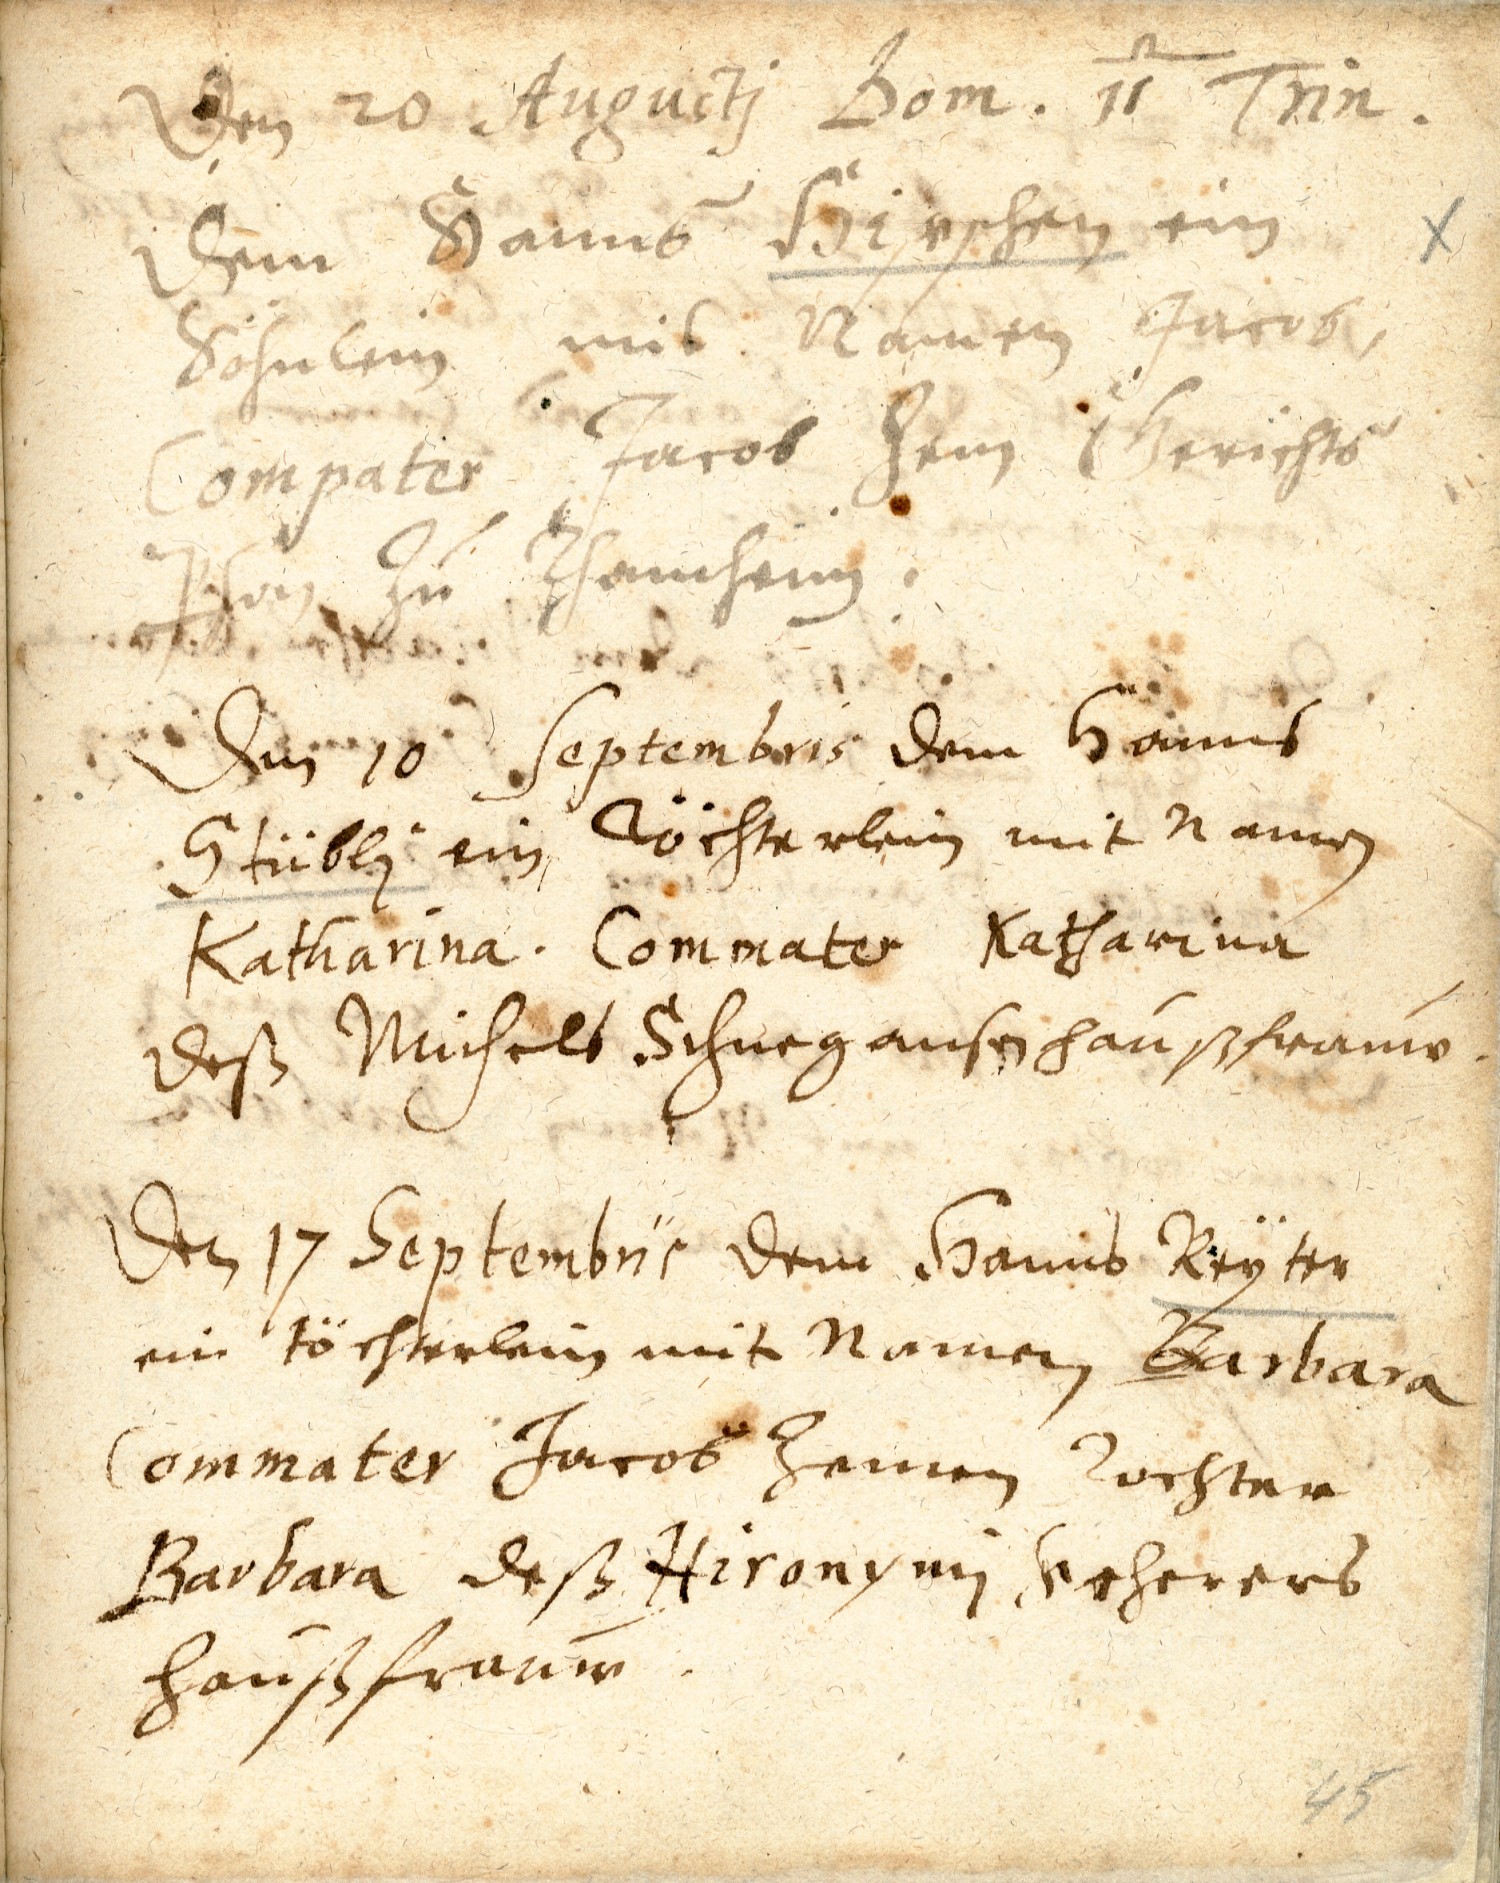 Den 20 Augustj Dom. 11 Trin.
Dem Hanns Hirschen ein
Söhnlein mit Namen Jacob,
Compater Jacob Hem Gerichts
zu Thamheim.
Den 10 Septembris dem Hanns
Stüblj ein Töchterlein mit Namen
Katharina. Commater Katharina
deß Michels Schneganshen haußfrauw.
Den 17 Septembris dem Hanns Reÿter
ein töchterlein mit Namen Barbara
Commater Jacob Hemen Tochter
Barbara deß Hironymj Scherers
haußfrauw.
45